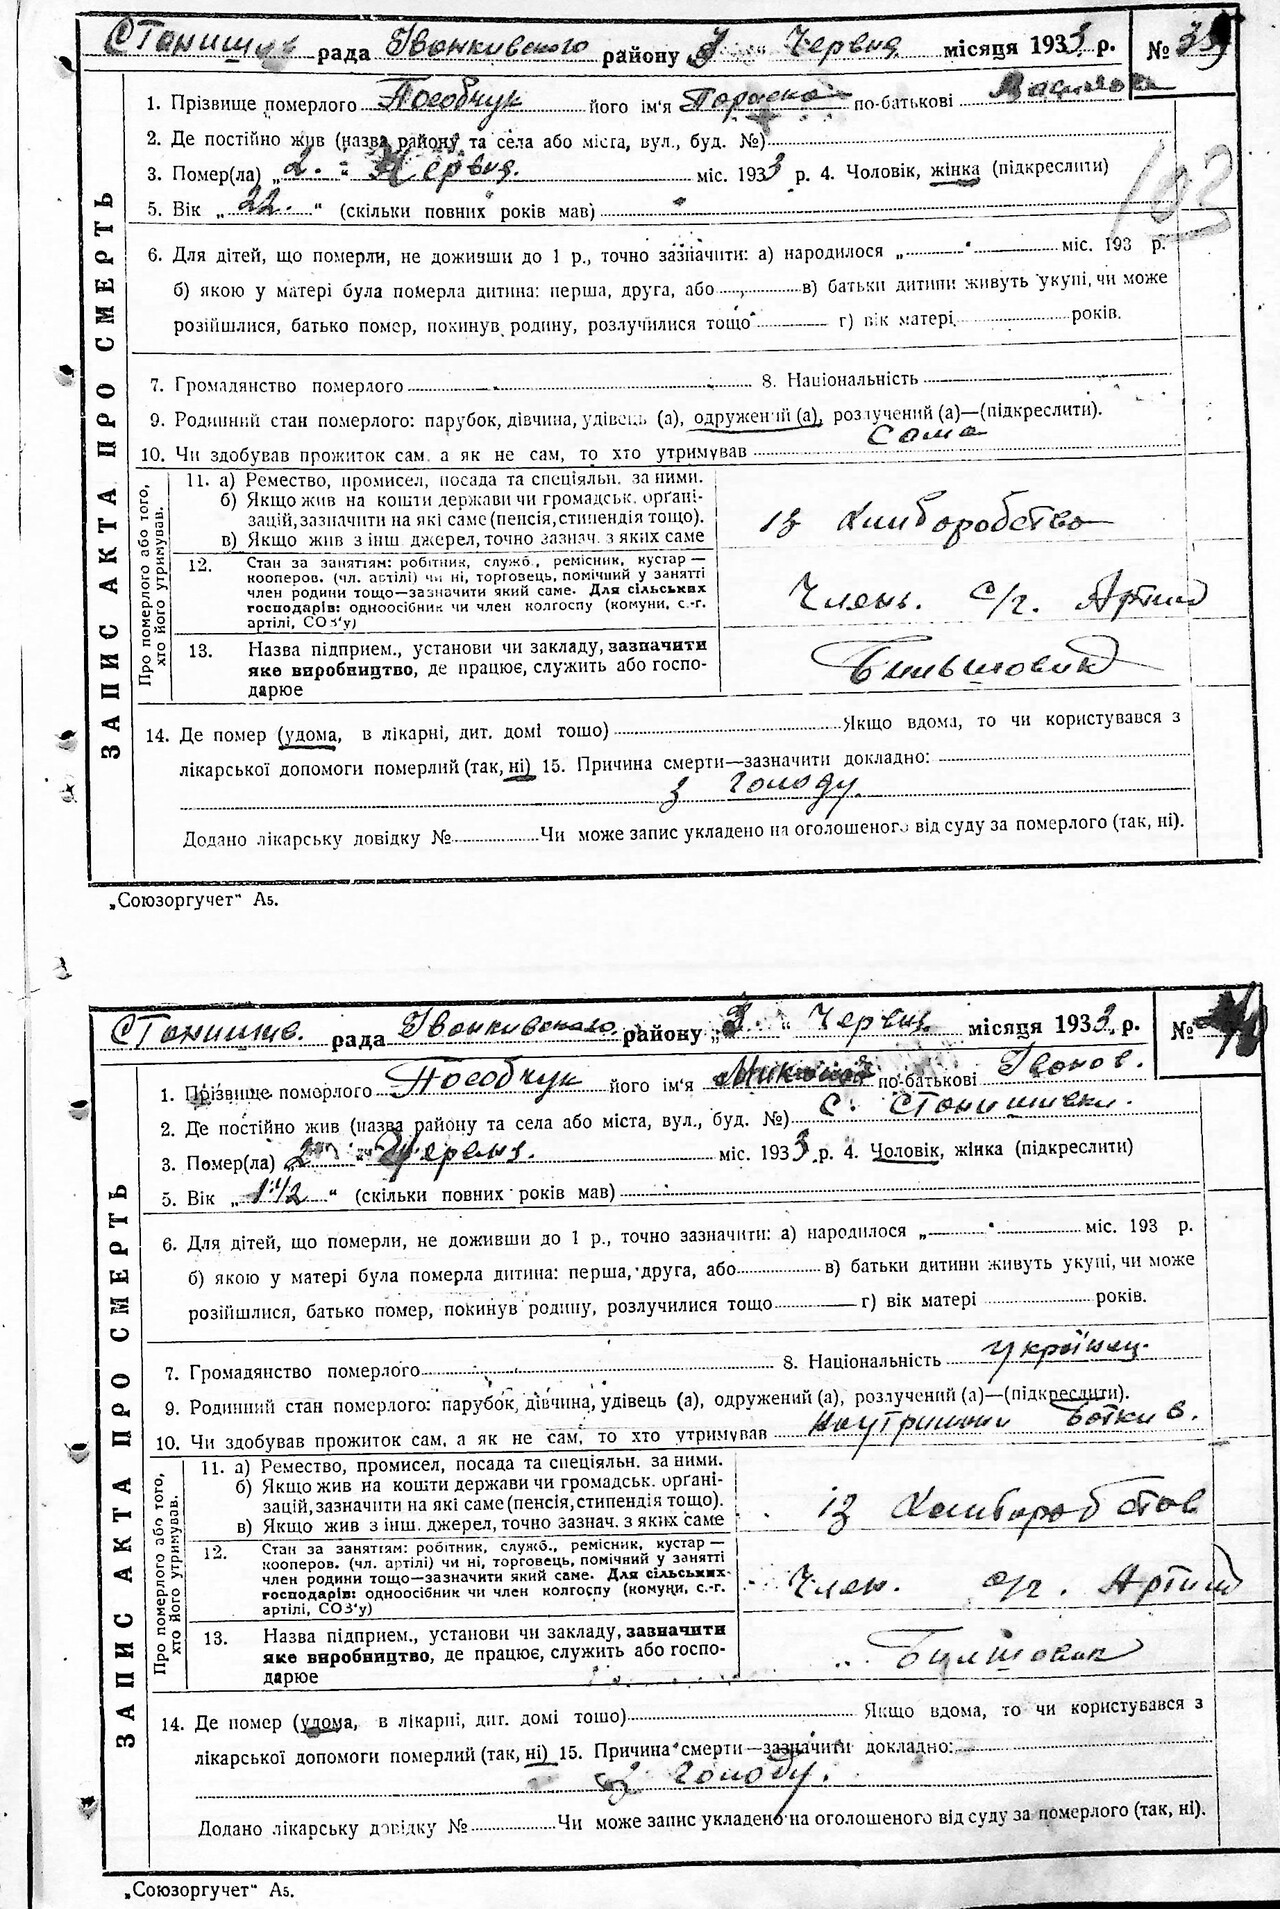 Станишив рада Іванкивського району „3“ Червня місяця 1933 р. № 39
1. Прізвище померлого Пособчук його ім'я Параска по-батькові
103
2. Де постійно жив (назва району та села або міста, вул., буд. №)
3. Помер(ла) „2“ Червня. міс. 1933 р. 4. Чоловік, жінка (підкреслити)
5. Вік „22.“ (скільки повних років мав)
6. Для дітей, що померли, не доживши до 1 р., точно зазначити: а) народилося „ “ міс. 193 р.
б) якою у матері була померла дитина: перша, друга, або в) батьки дитини живуть укупі, чи може
розійшлися, батько помер, покинув родину, розлучилися тощо г) вік матері років.
7. Громадянство померлого 8. Національність
9. Родинний стан померлого: парубок, дівчина, удівець (а), одружений (а), розлучений (а)—(підкреслити).
10. Чи здобував прожиток сам, а як не сам, то хто утримував сама
ЗАПИС АКТА ПРО СМЕРТЬ
Про померлого або того,
хто його утримував.
11. а) Ремество, промисел, посада та спеціяльн. за ними.
б) Якщо жив на кошти держави чи громадськ. орґані-
зацій, зазначити на які саме (пенсія, стипендія тощо).
в) Якщо жив з інш. джерел, точно зазнач. з яких саме
із Хлиборобство
12. Стан за заняттям: робітник, служб., ремісник, кустар —
кооперов. (чл. артілі) чи ні, торговець, помічний у занятті
член родини тощо—зазначити який саме. Для сільських
господарів: одноосібник чи член колгоспу (комуни, с.-г.
артілі, СОЗ'у)
Член. с/г. Артили
13. Назва підприєм., установи чи закладу, зазначити
яке виробництво, де працює, служить або госпо-
дарює
Бильшовик
14. Де помер (удома, в лікарні, дит. домі тощо) Якщо вдома, то чи користувався з
лікарської допомоги померлий (так, ні) 15. Причина смерти—зазначити докладно:
з голоду.
Додано лікарську довідку № Чи може запис укладено на оголошеного від суду за померлого (так, ні).
„Союзоргучет“ А5.
Станишив. рада Іванкивського району „3“ Червня місяця 1933 р. № 40
1. Прізвище померлого Пособчук його ім'я Микола по-батькові Іванов.
2. Де постійно жив (назва району та села або міста, вул., буд. №) с. Станишивки.
3. Помер(ла) 2 Червня. міс. 1933 р. 4. Чоловік, жінка (підкреслити)
5. Вік „1 1/2“ (скільки повних років мав)
6. Для дітей, що померли, не доживши до 1 р., точно зазначити: а) народилося „ “ міс. 193 р.
б) якою у матері була померла дитина: перша, друга, або в) батьки дитини живуть укупі, чи може
розійшлися, батько помер, покинув родину, розлучилися тощо г) вік матері років.
7. Громадянство померлого 8. Національність українец.
9. Родинний стан померлого: парубок, дівчина, удівець (а), одружений (а), розлучений (а)—(підкреслити).
10. Чи здобував прожиток сам, а як не сам, то хто утримував на утриманни батькив.
ЗАПИС АКТА ПРО СМЕРТЬ
Про померлого або того,
хто його утримував.
11. а) Ремество, промисел, посада та спеціяльн. за ними.
б) Якщо жив на кошти держави чи громадськ. орґані-
зацій, зазначити на які саме (пенсія, стипендія тощо).
в) Якщо жив з інш. джерел, точно зазнач. з яких саме
із Хлиборобстов
12. Стан за заняттям: робітник, служб., ремісник, кустар —
кооперов. (чл. артілі) чи ні, торговець, помічний у занятті
член родини тощо—зазначити який саме. Для сільських
господарів: одноосібник чи член колгоспу (комуни, с.-г.
артілі, СОЗ'у)
Член. с/г. Артили
13. Назва підприєм., установи чи закладу, зазначити
яке виробництво, де працює, служить або госпо-
дарює
Билшовик
14. Де помер (удома, в лікарні, дит. домі тощо) Якщо вдома, то чи користувався з
лікарської допомоги померлий (так, ні) 15. Причина смерти—зазначити докладно:
з голоду.
Додано лікарську довідку № Чи може запис укладено на оголошеного від суду за померлого (так, ні).
„Союзоргучет“ А5.